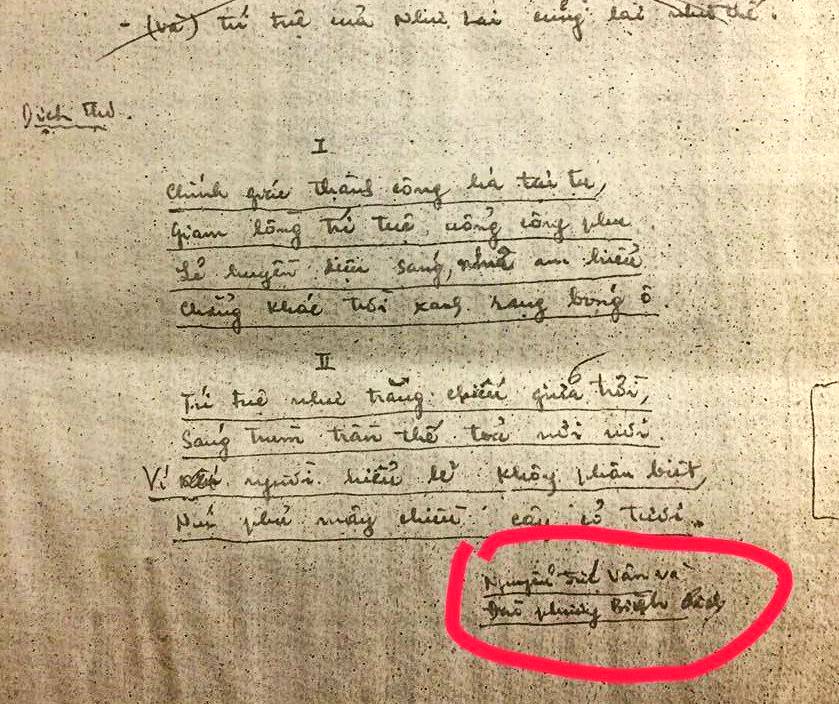 - (và) trí tuệ của Như Lai cũng lại như thế.
Dịch thơ.
I
Chính giác thành công há tại tu,
Giam lồng trí tuệ, uổng công phu
Lẽ huyền diệu sáng, như am hiểu
Chẳng khác trời xanh rạng bóng ô.
II
Trí tuệ như trăng chiếu giữa trời,
Sáng trùm trần thế toả nơi nơi.
Ví người hiểu lẽ không phân biệt,
Núi phủ mây chiều cây cỏ tươi.
Nguyễn Đức Vân và
Đào Phương Bình dịch